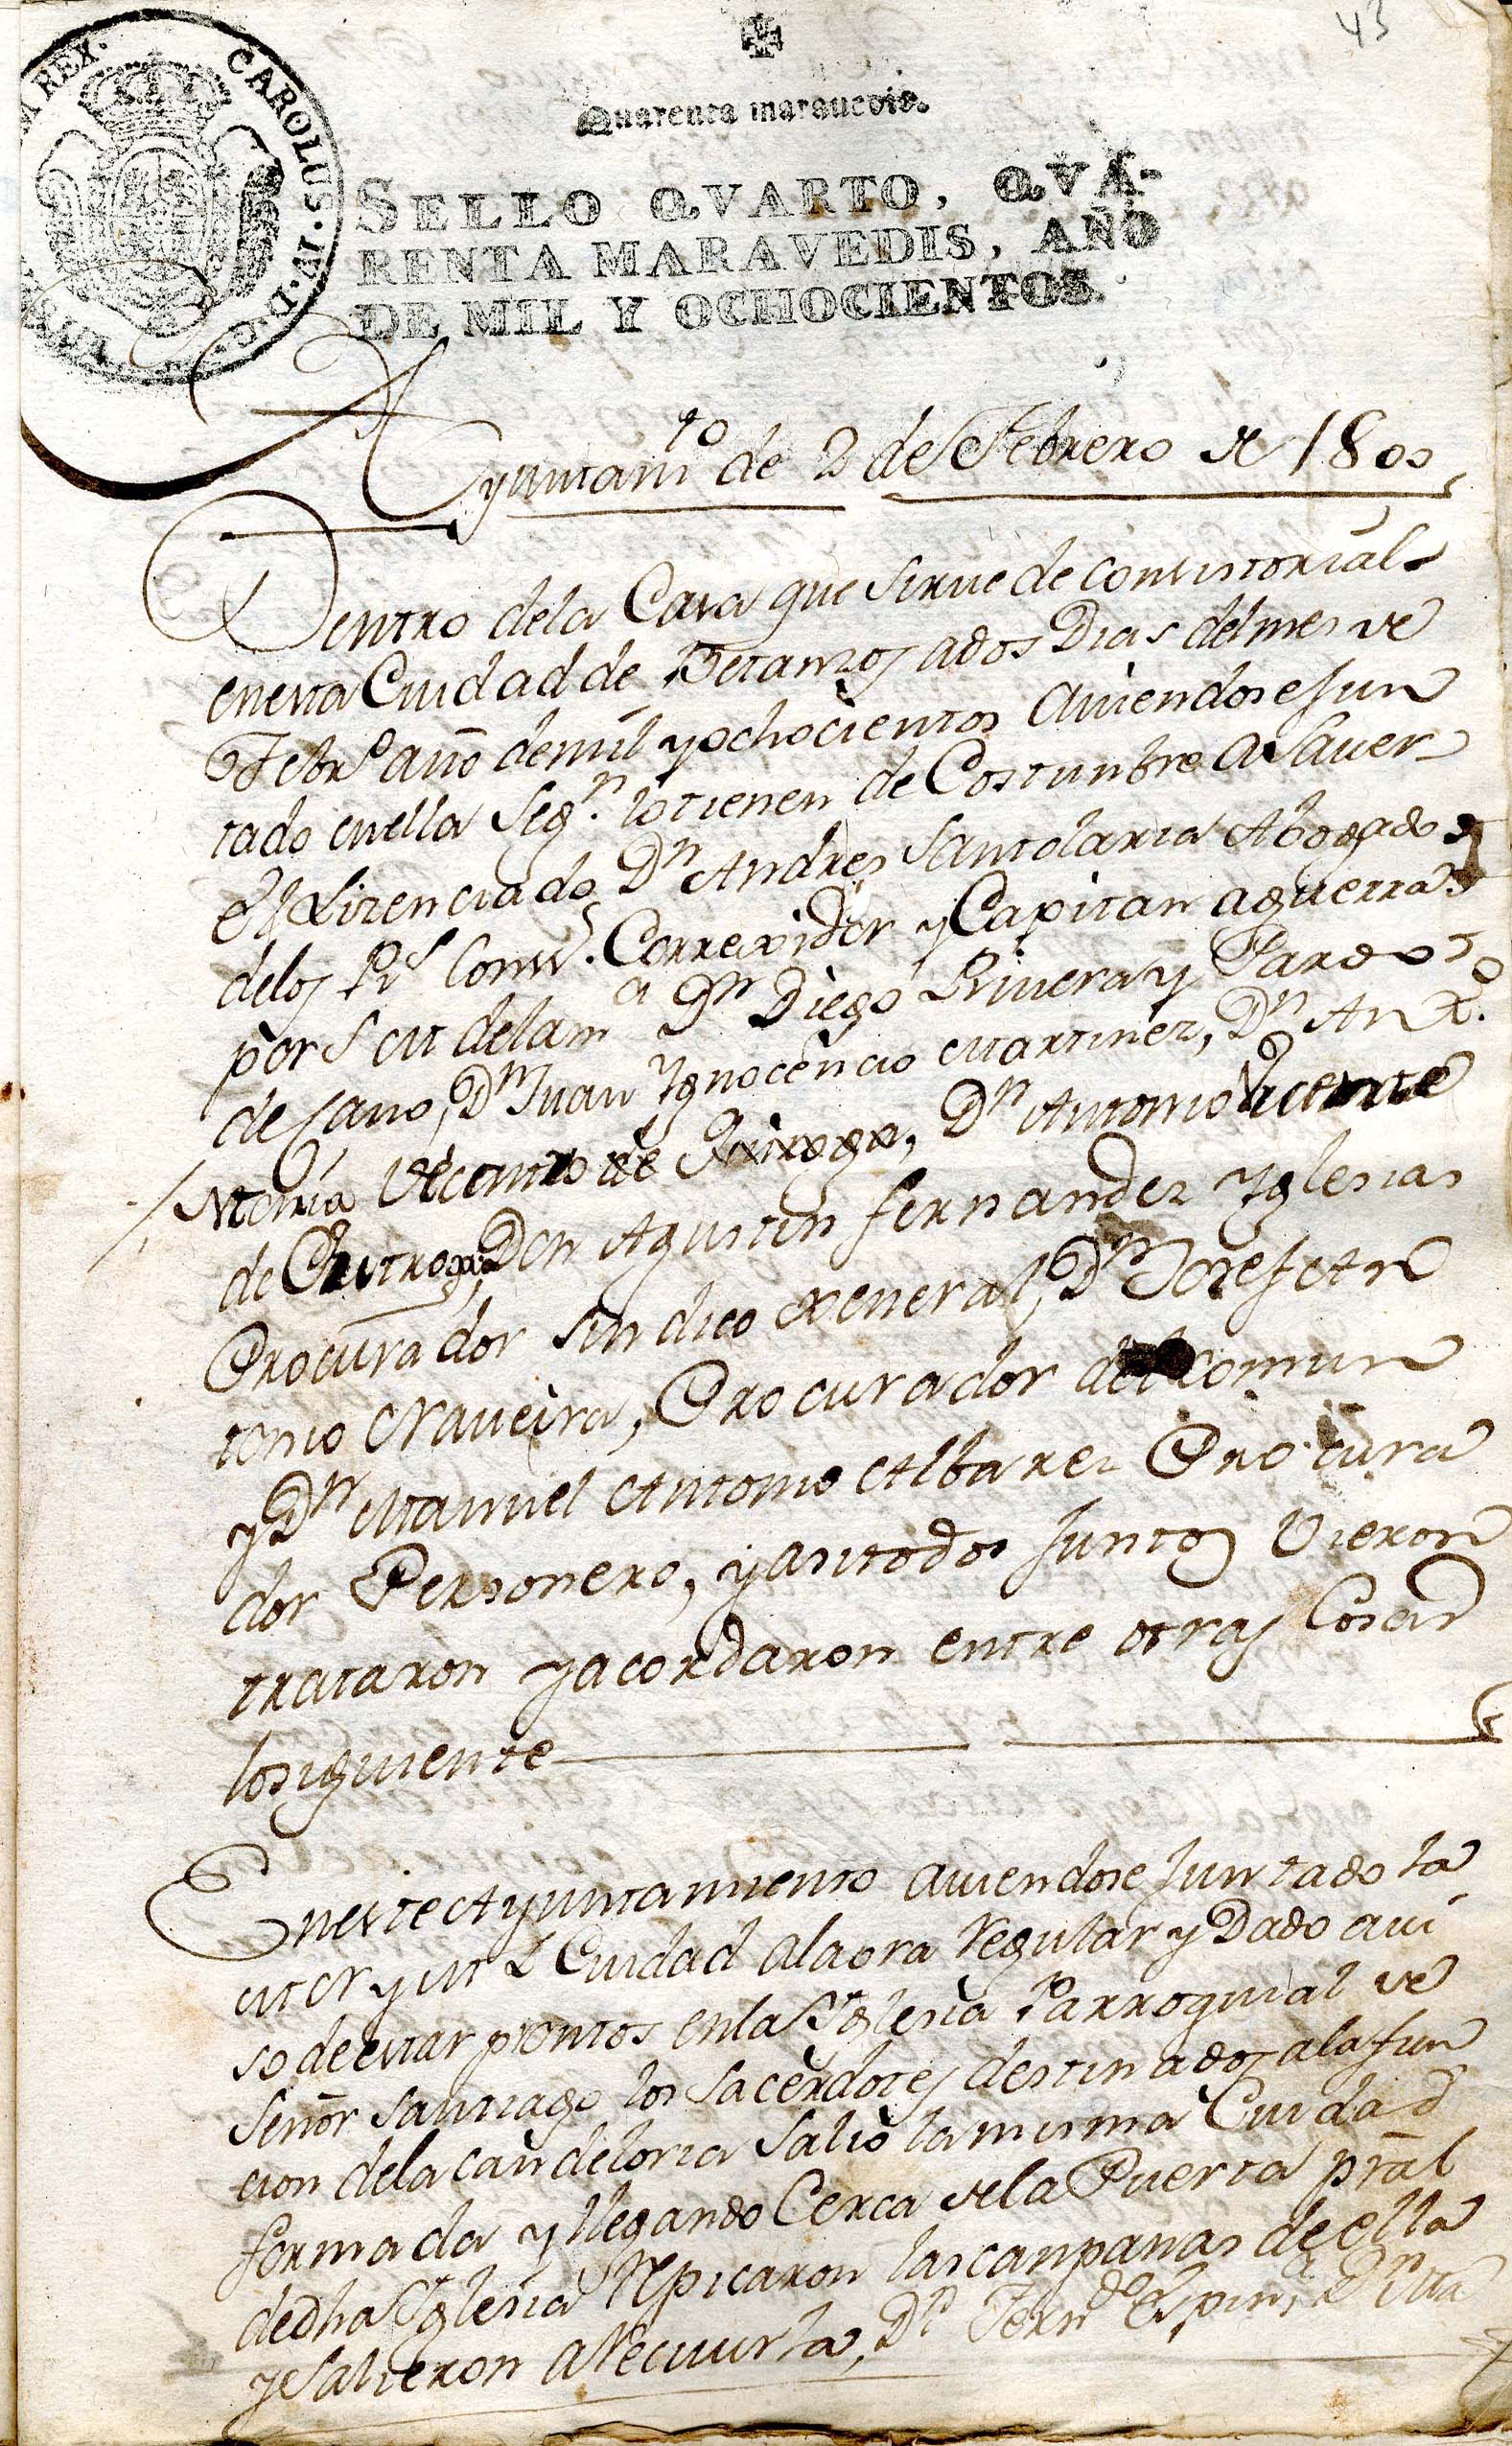 43
Quarenta marauedis.
CAROLUS·IV·D·G· REX·
SELLO QVARTO, QVA-
RENTA MARAVEDIS, AÑO
DE MIL Y OCHOCIENTOS.
Ayuntam.to de 2 de Febrero de 1800
Dentro dela Casa que sirue de Consistorial
enesta Ciudad de Betanzos ados Dias delmes de
Febr.o año demil yochocientos Auiendose Jun
tado enella Seg.n lotienen de Costunbre a Sauer
el Lizenciado D.n Andres Santolaria Abogado
delos R.s Cons.s Correxidor y Capitan aguerra
por S M delam.a D.n Diego Riuera y Pardo
de Cano, D.n Juan Ygnocencio Martinez, D.n An.to
Maria Vecentro de Quiroga, D.n Antonio Vicente
de Castro, Don Agustin fernandez Yglesias
Procurador sindico xeneral, D.n Josef An
tonio Naueira, Procurador del Comun
y D.n Manuel Antonio Albarez Procura
dor Personero, y asitodos Juntos Vieron
trataron yacordaron entre otras Cosas
losiguiente
Eneste Ayuntamiento auiendose Juntado la
M N y M L Ciudad alaora regular y Dado aui
so deestar prontos enla Yglesia Parroquial de
Señor Santiago los sacerdotes destinados ala fun
cion dela candeloria Salio lamisma Ciudad
formada y llegando Cerca dela Puerta pral
dedha Yglesia Repicaron las canpanas de ella
y Salieron a Reciuirla, D.n Fern.do Espin.a D.n